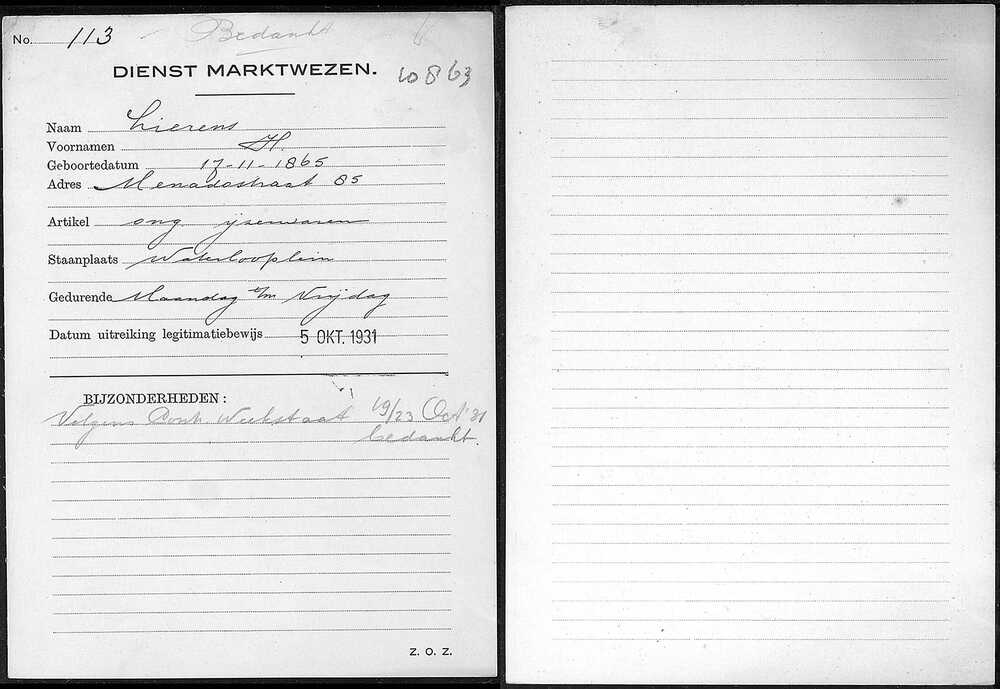 No. 113 - Bedankt
DIENST MARKTWEZEN.
10863
Naam Lierens
Voornamen H.
Geboortedatum 17-11-1865
Adres Menadostraat 85
Artikel ong. ijzerwaren
Staanplaats Waterlooplein
Gedurende Maandag t/m Vrijdag
Datum uitreiking legitimatiebewijs 5 OKT. 1931
BIJZONDERHEDEN:
Volgens Contr. Weekstaat 19/23 Oct '31
bedankt.
Z. O. Z.